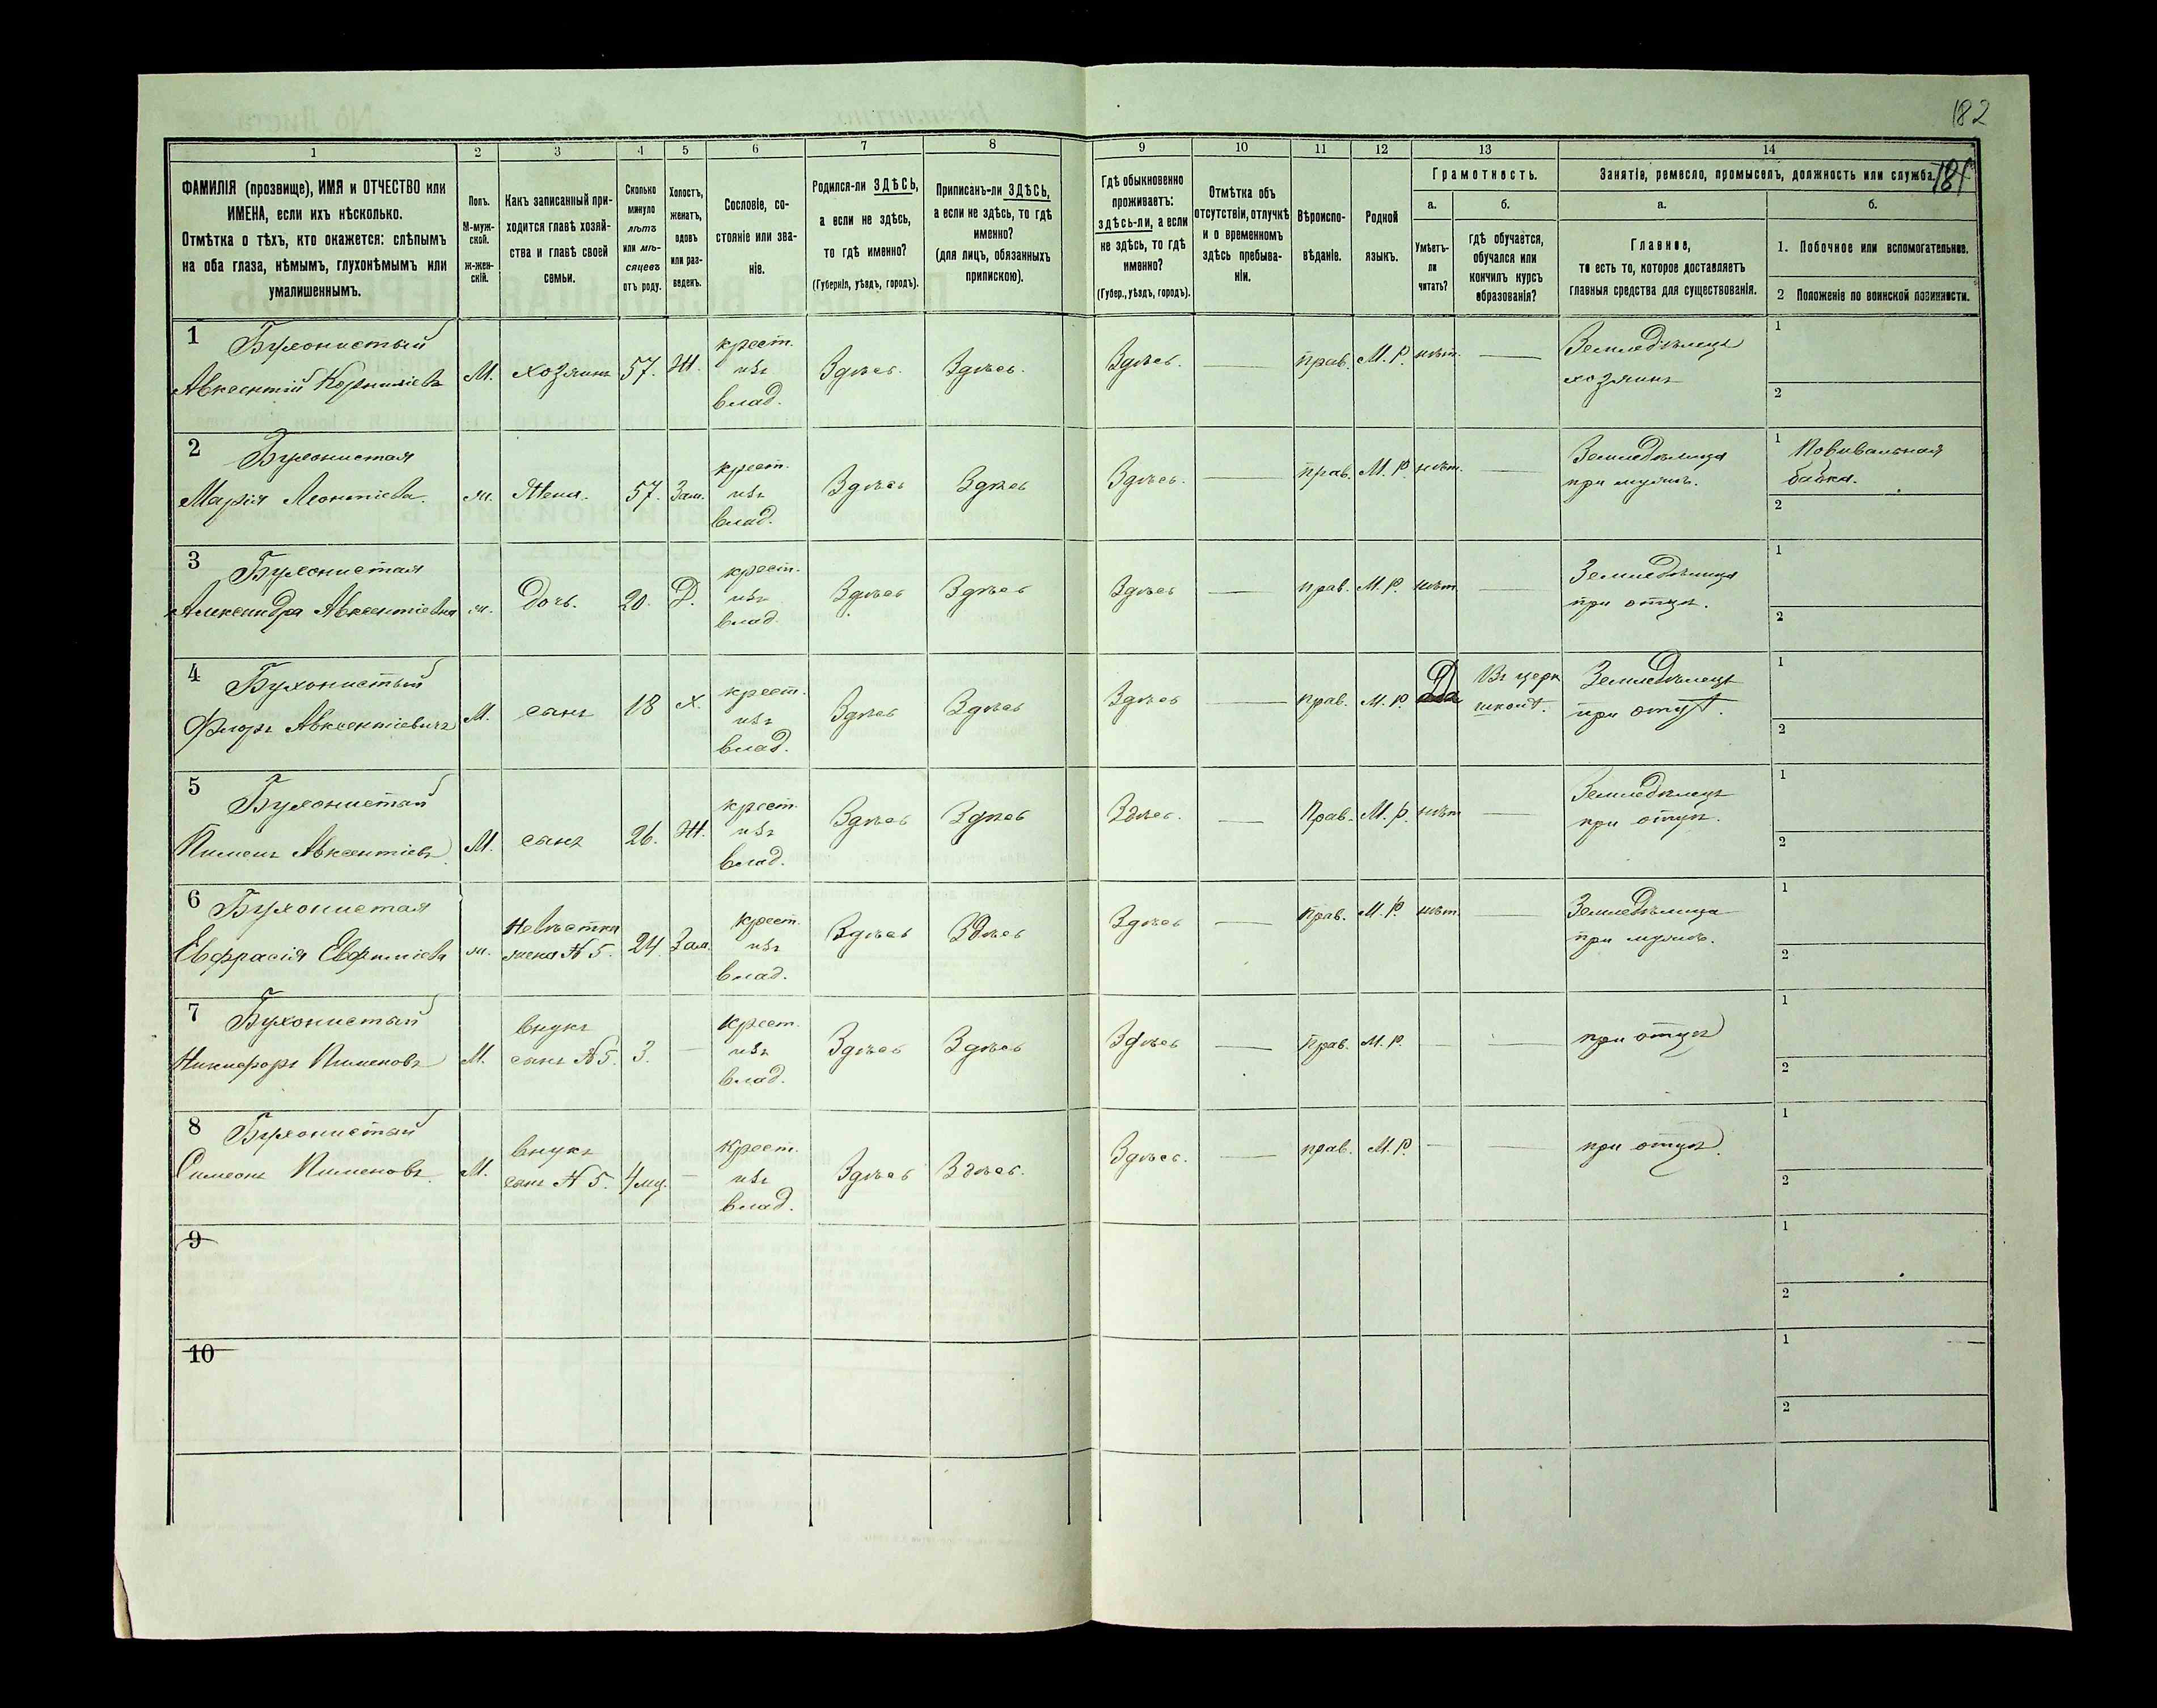 182
181
1 2 3 4 5 6 7 8 9 10 11 12 13 14
ФАМИЛІЯ (прозвище), ИМЯ и ОТЧЕСТВО или
ИМЕНА, если ихъ нѣсколько.
Отмѣтка о тѣхъ, кто окажется: слѣпымъ
на оба глаза, нѣмымъ, глухонѣмымъ или
умалишеннымъ.
Полъ.
М-муж-
ской.
ж-жен-
скій.
Какъ записанный при-
ходится главѣ хозяй-
ства и главѣ своей
семьи.
Сколько
минуло
лѣтъ
или мѣ-
сяцевъ
отъ роду.
Холостъ,
женатъ,
вдовъ
или раз-
веденъ.
Сословіе, со-
стояніе или зва-
ніе.
Родился-ли ЗДѢСЬ,
а если не здѣсь,
то гдѣ именно?
(Губернія, уѣздъ, городъ).
Приписанъ-ли ЗДѢСЬ,
а если не здѣсь, то гдѣ
именно?
(для лицъ, обязанныхъ
припискою).
Гдѣ обыкновенно
проживаетъ:
здѣсь-ли, а если
не здѣсь, то гдѣ
именно?
(Губер., уѣздъ, городъ).
Отмѣтка объ
отсутствіи, отлучкѣ
и о временномъ
здѣсь пребыва-
ніи.
Вѣроиспо-
вѣданіе.
Родной
языкъ.
Грамотность.
а.
Умѣетъ-
ли
читать?
б.
гдѣ обучается,
обучался или
кончилъ курсъ
образованія?
Занятіе, ремесло, промыселъ, должность или служба.
а.
Главное,
то есть то, которое доставляетъ
главныя средства для существованія.
б.
1. Побочное или вспомогательное.
2 Положеніе по воинской повинности.
1 Бухонистый
Авксентій Корниліевъ
М. хозяинъ 57. Ж.
крест.
изъ
влад.
Здѣсь. Здѣсь. Здѣсь. — прав. М. Р. нѣтъ. —
Земледѣлецъ
хозяинъ
1
2
2 Бухонистая
Марія Леонтіева
ж. Жена. 57. Зам.
крест.
изъ
влад.
Здѣсь Здѣсь Здѣсь. — прав. М. Р. нѣт. —
Земледѣлица
при мужѣ.
1 Повивальная
бабка.
2
3 Бухонистая
Александра Авксентіевна
ж. Дочь. 20. Д.
крест.
изъ
влад.
Здѣсь Здѣсь Здѣсь — прав. М. Р. нѣт —
Земледѣлица
при отцѣ.
1
2
4 Бухонистый
Флоръ Авксентіевичъ
М. сынъ 18 х.
крест.
изъ
влад.
Здѣсь Здѣсь Здѣсь — прав. М. Р. Да
Въ церк
школѣ.
Земледѣлецъ
при отцѣ.
1
2
5 Бухонистый
Пименъ Авксентіевъ
М. сынъ 26. Ж.
крест.
изъ
влад.
Здѣсь Здѣсь Здѣсь. — Прав. М. р. нѣт —
Земледѣлецъ
при отцѣ.
1
2
6 Бухонистая
Евфрасія Евфиміева
ж.
Невѣстка
жена N 5.
24. Зам.
крест.
изъ
влад.
Здѣсь Здѣсь Здѣсь — прав. М. Р. нѣт. —
Земледѣлица
при мужѣ.
1
2
7 Бухонистый
Никифоръ Пименовъ
М.
внукъ
сынъ N 5.
3. —
крест.
изъ
влад.
Здѣсь Здѣсь Здѣсь — прав. М. Р. — —
при отцѣ
1
2
8 Бухонистый
Симеонъ Пименовъ.
М.
внукъ
сынъ N 5.
4 мц. —
крест.
изъ
влад.
Здѣсь Здѣсь. Здѣсь. — прав. М. Р. — —
при отцѣ.
1
2
9
1
2
10
1
2